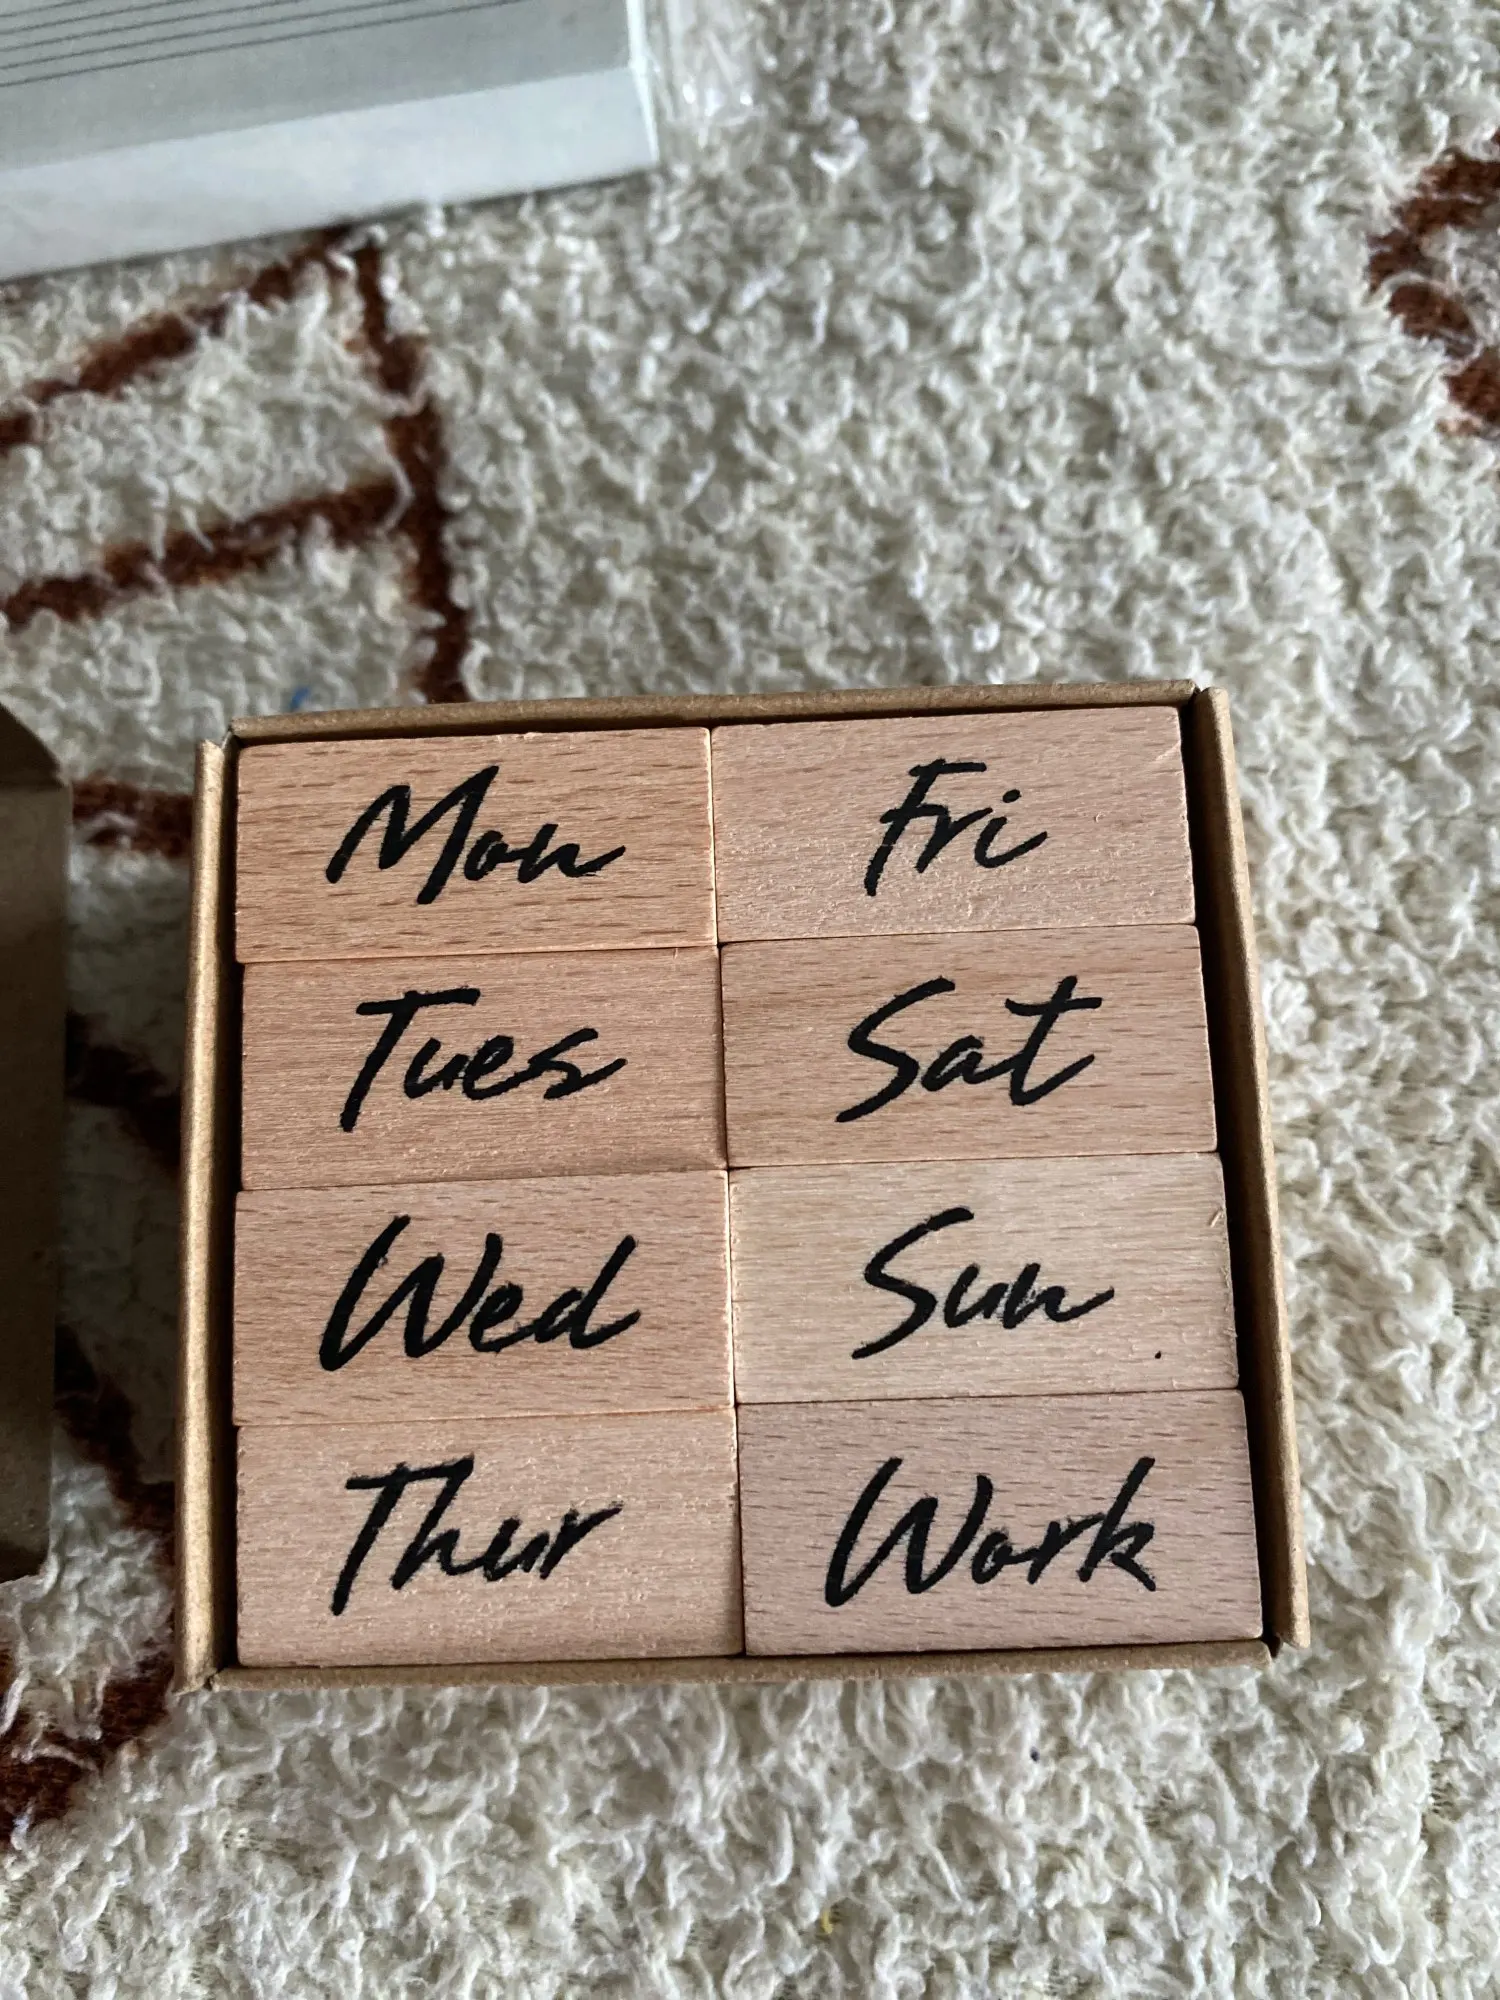 Mon
Tues
Wed
Thur
Fri
Sat
Sun
Work